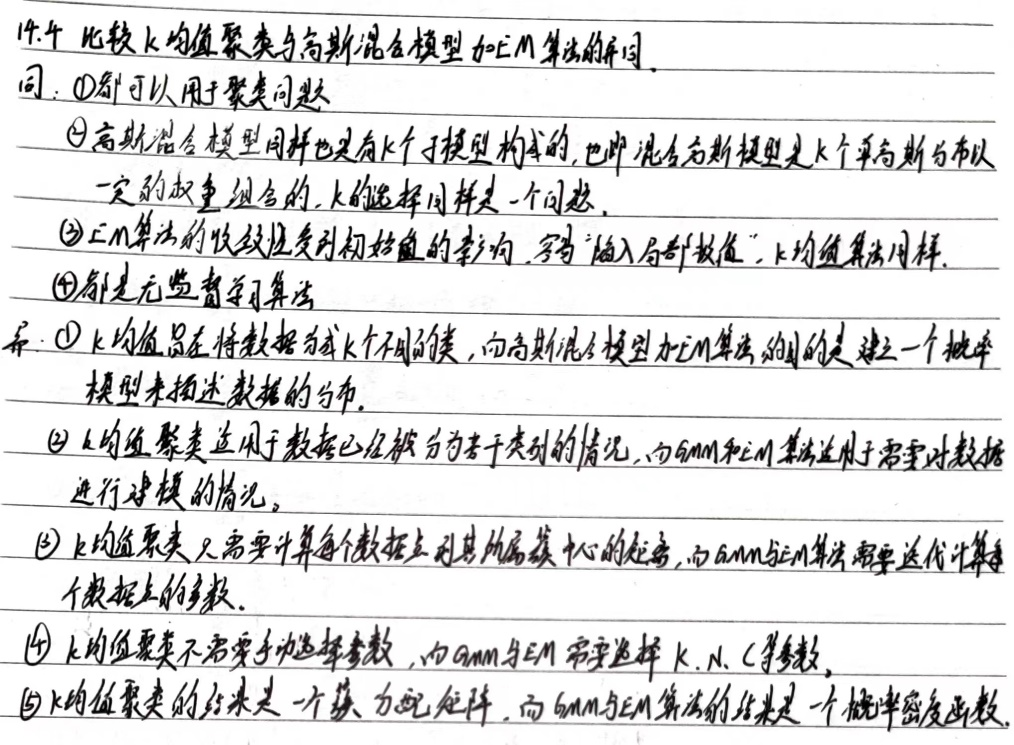 14.4 比较K均值聚类与高斯混合模型加EM算法的异同.
同: ①都可以用于聚类问题
②高斯混合模型同样也是有K个子模型构成的, 也即混合高斯模型是K个单高斯分布以
一定的权重组合的, K的选择同样是一个问题.
③EM算法的收敛性受到初始值的影响, 容易"陷入局部数值", K均值算法同样.
④都是无监督学习算法
异: ① K均值旨在将数据分成K个不同的类, 而高斯混合模型加EM算法的目的是建立一个概率
模型来描述数据的分布.
② K均值聚类适用于数据已经被分为若干类别的情况, 而GMM和EM算法适用于需要对数据
进行建模的情况。
③ K均值聚类只需要计算每个数据点到其所属簇中心的距离, 而GMM与EM算法需要迭代计算每
个数据点的参数.
④ K均值聚类不需要手动选择参数, 而GMM与EM需要选择 K. N. C等参数.
⑤ K均值聚类的结果是一个簇分配矩阵, 而GMM与EM算法的结果是一个概率密度函数.